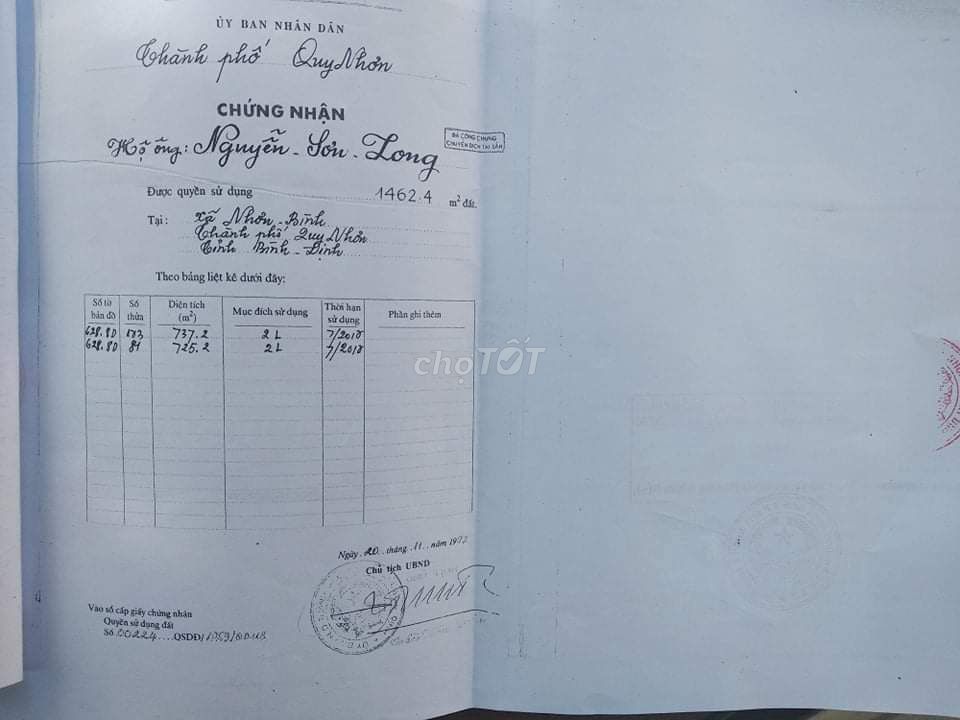 ỦY BAN NHÂN DÂN
Thành phố Quy Nhơn
CHỨNG NHẬN
Hộ ông: Nguyễn - Sơn - Long
ĐÃ CÔNG CHỨNG
CHUYỂN DỊCH TÀI SẢN
Được quyền sử dụng 1462.4 m² đất.
Tại: xã Nhơn - Bình
Thành phố Quy Nhơn
Tỉnh Bình - Định
Theo bảng liệt kê dưới đây:
Số tờ bản đồ Số thửa Diện tích (m²) Mục đích sử dụng Thời hạn sử dụng Phần ghi thêm
628.80 737.2 2L
628.80 81 725.2 2L
chợTỐT
Ngày 20 tháng 11 năm
Chủ tịch UBND
Vào sổ cấp giấy chứng nhận
Quyền sử dụng đất
Số 00224 QSDĐ/